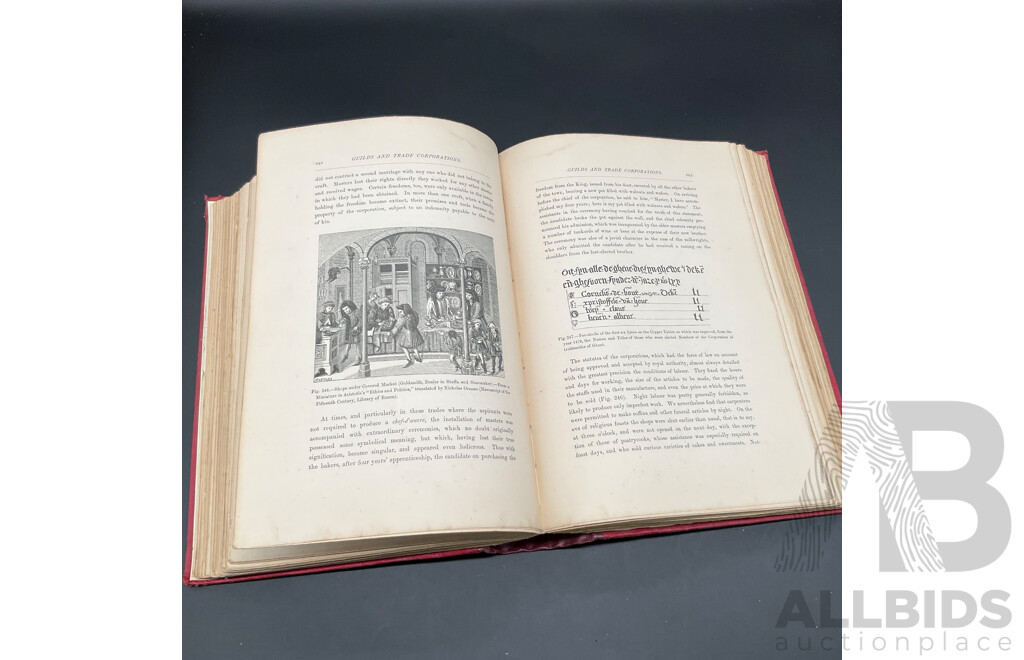 GUILDS AND TRADE CORPORATIONS.
did not contract a second marriage with any one who did not belong to the
craft. Masters lost their rights directly they worked for any other master
and received wages. Certain freedoms, too, were only available in the towns
in which they had been obtained. In more than one craft, when a family
holding the freedom became extinct, their premises and tools became the
property of the corporation, subject to an indemnity payable to the next
of kin.
Fig. 246.—Shops under Covered Market (Goldsmith, Dealer in Stuffs, and Shoemaker).—From a
Miniature in Aristotle's "Ethics and Politics," translated by Nicholas Oresme (Manuscript of the
Fifteenth Century, Library of Rouen).
At times, and particularly in those trades where the aspirants were
not required to produce a chef-d'œuvre, the installation of masters was
accompanied with extraordinary ceremonies, which no doubt originally
possessed some symbolical meaning, but which, having lost their true
signification, became singular, and appeared even ludicrous. Thus with
the bakers, after four years' apprenticeship, the candidate on purchasing the
GUILDS AND TRADE CORPORATIONS.
freedom from the King, issued from his door, escorted by all the other bakers
of the town, bearing a new pot filled with walnuts and wafers. On arriving
before the chief of the corporation, he said to him, "Master, I have accom-
plished my four years; here is my pot filled with walnuts and wafers." The
assistants in the ceremony having vouched for the truth of this statement,
the candidate broke the pot against the wall, and the chief solemnly pro-
nounced his admission, which was inaugurated by the older masters emptying
a number of tankards of wine or beer at the expense of their new brother.
The ceremony was also of a jovial character in the case of the millwrights,
who only admitted the candidate after he had received a caning on the
shoulders from the last-elected brother.
Fig. 247.—Fac-simile of the first six Lines on the Copper Tablet on which was engraved, from the
year 1470, the Names and Titles of those who were elected Members of the Corporation of
Goldsmiths of Ghent.
The statutes of the corporations, which had the force of law on account
of being approved and accepted by royal authority, almost always detailed
with the greatest precision the conditions of labour. They fixed the hours
and days for working, the size of the articles to be made, the quality of
the stuffs used in their manufacture, and even the price at which they were
to be sold (Fig. 246). Night labour was pretty generally forbidden, as
likely to produce only imperfect work. We nevertheless find that carpenters
were permitted to make coffins and other funeral articles by night. On the
eve of religious feasts the shops were shut earlier than usual, that is to say,
at three o'clock, and were not opened on the next day, with the excep-
tion of those of pastrycooks, whose assistance was especially required on
feast days, and who sold curious varieties of cakes and sweetmeats. Not-
AB
ALLBIDS
auctionplace